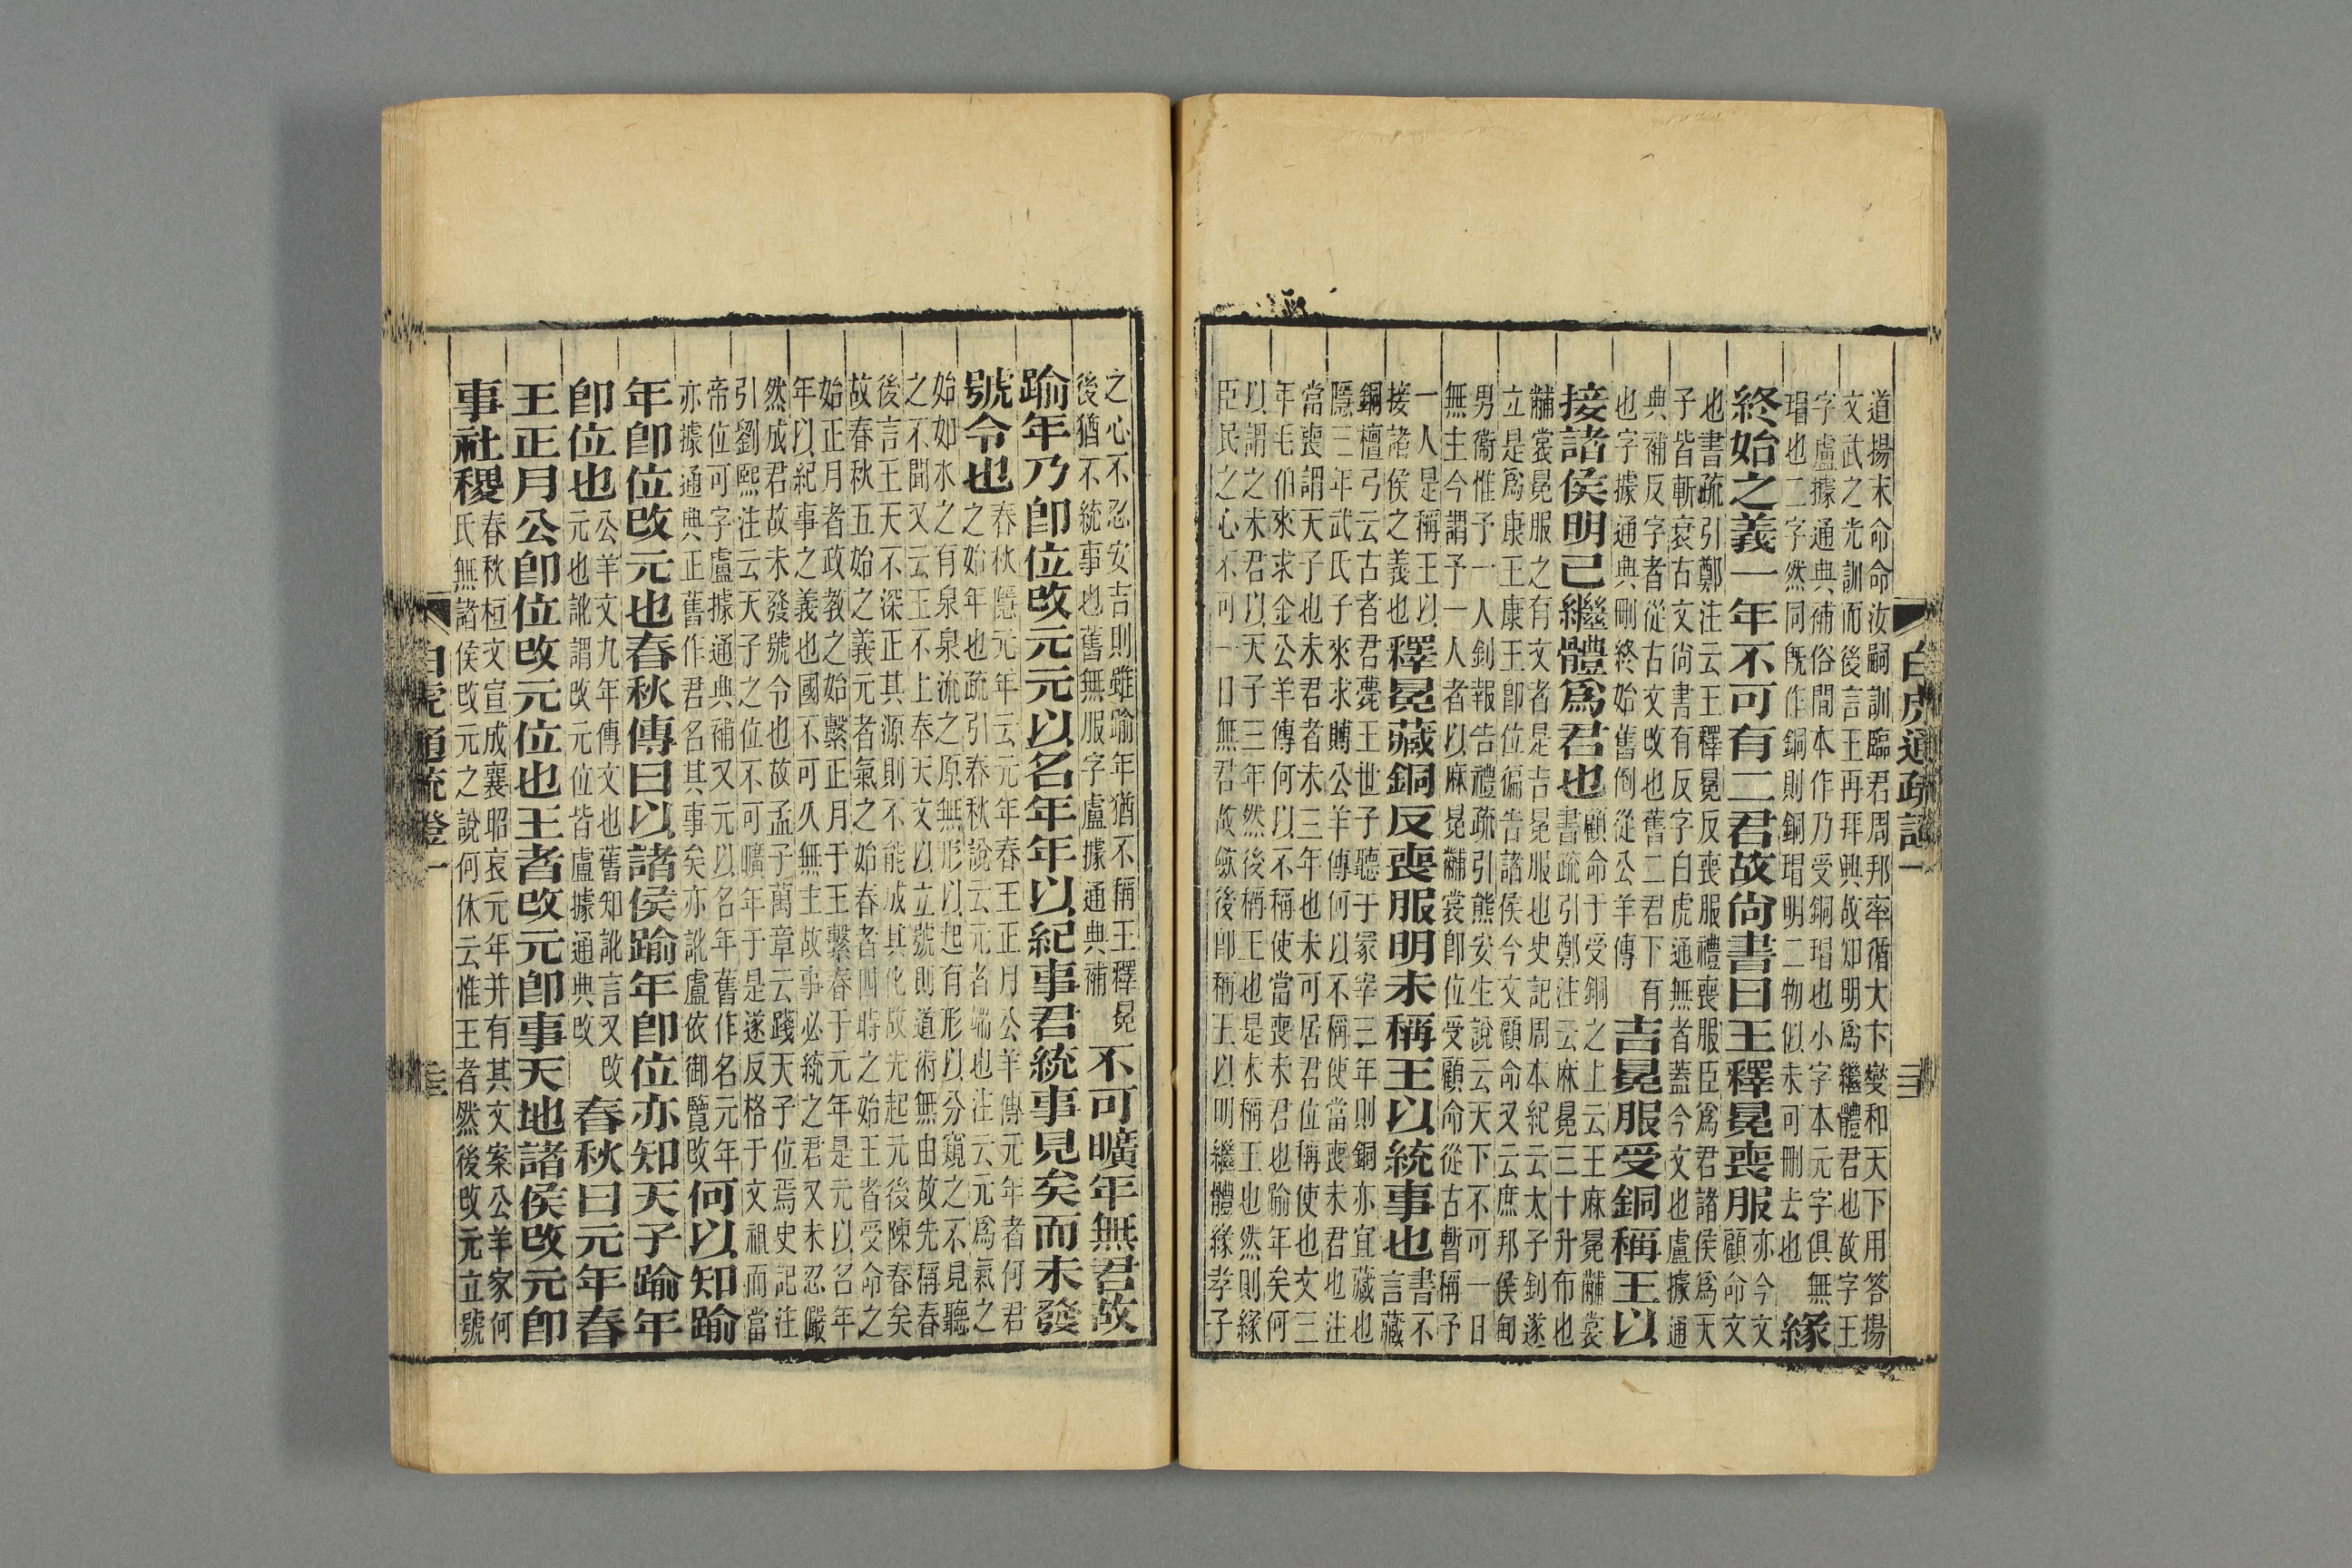 白虎通疏證一
道揚末命命汝嗣訓臨君周邦率循大卞燮和天下用答揚
文武之光訓而後言王再拜興故知明爲繼體君也故字王
字盧據通典補俗間本作乃受銅瑁也小字本元字俱無
瑁也二字然同旣作銅則銅瑁明二物似未可刪去也
緣
終始之義一年不可有二君故尙書曰王釋冕喪服
亦今文
顧命文
也書疏引鄭注云王釋冕反喪服禮喪服臣爲君諸侯爲天
子皆斬衰古文尙書有反字白虎通無者蓋今文也盧據通
典補反字者從古文改也舊二君下有
也字據通典刪終始舊倒從公羊傳
吉冕服受銅稱王以
接諸侯明已繼體爲君也
顧命于受銅之上云王麻冕黼裳
書疏引鄭注云麻冕三十升布也
黼裳冕服之有文者是吉冕服也史記周本紀云太子釗遂
立是爲康王康王卽位徧告諸侯今文顧命又云庶邦侯甸
男衞惟予一人釗報告禮疏引熊安生說云天下不可一日
無主今謂予一人者以麻冕黼裳卽位受顧命從古暫稱予
一人是稱王以
接諸侯之義也
釋冕藏銅反喪服明未稱王以統事也
書不
言藏
銅檀弓云古者君薨王世子聽于冢宰三年則銅亦宜藏也
隱三年武氏子來求賻公羊傳何以不稱使當喪未君也注
當喪謂天子也未君者未三年也未可居君位稱使也文三
年毛伯來求金公羊傳何以不稱使當喪未君也踰年矣何
以謂之未君以天子三年然後稱王也是未稱王也然則緣
臣民之心不可一日無君故斂後卽稱王以明繼體緣孝子
之心不忍安吉則雖踰年猶不稱王釋冕
後猶不統事也舊無服字盧據通典補
不可曠年無君故
踰年乃卽位改元元以名年年以紀事君統事見矣而未發
號令也
春秋隱元年云元年春王正月公羊傳元年者何君
之始年也疏引春秋說云元者端也注云元爲氣之
始如水之有泉泉流之原無形以起有形以分窺之不見聽
之不聞又云王不上奉天文以立號則道術無由故先稱春
後言王天不深正其源則不能成其化故先起元後陳春矣
故春秋五始之義元者氣之始春者四時之始王者受命之
始正月者政教之始繫正月于王繫春于元年是元以名年
年以紀事之義也國不可久無主故事必統之君又未忍儼
然成君故未發號令也故孟子萬章云踐天子位焉史記注
引劉熙注云天子之位不可曠年于是遂反格于文祖而當
帝位可字盧據通典補又元以名年舊作名元年
亦據通典正舊作君名其事矣亦訛盧依御覽改
何以知踰
年卽位改元也春秋傳曰以諸侯踰年卽位亦知天子踰年
卽位也
公羊文九年傳文也舊知訛言又改
元也訛謂改元位皆盧據通典改
春秋曰元年春
王正月公卽位改元位也王者改元卽事天地諸侯改元卽
事社稷
春秋桓文宣成襄昭哀元年并有其文案公羊家何
氏無諸侯改元之說何休云惟王者然後改元立號
白虎通疏證一